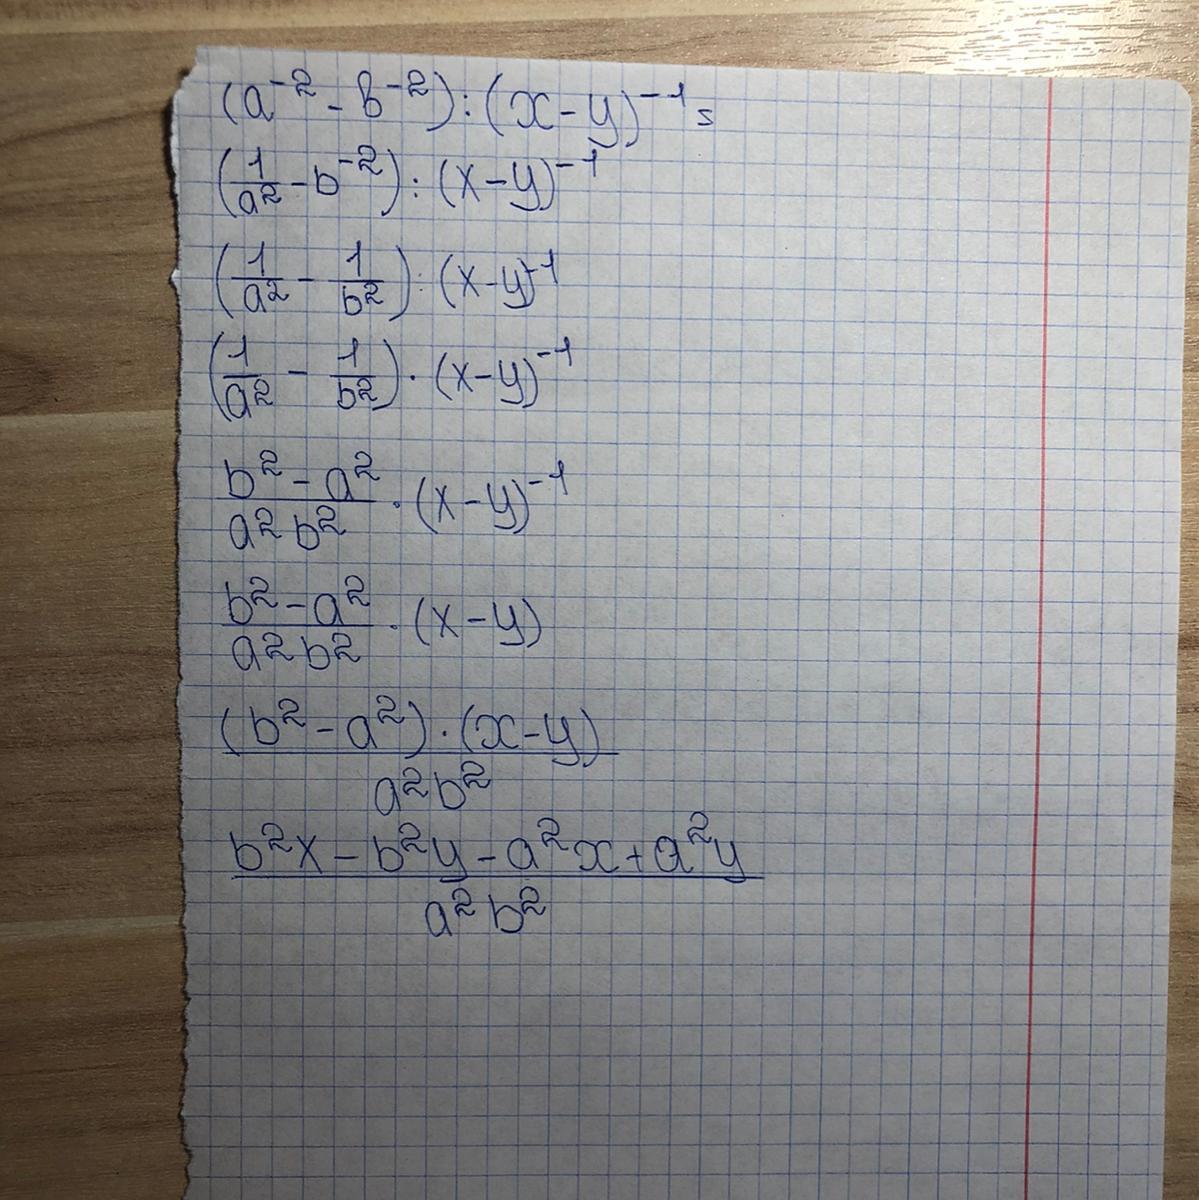 (a⁻² - b⁻²) : (x - y)⁻¹ =
(1/a² - b⁻²) : (x - y)⁻¹
(1/a² - 1/b²) : (x - y)⁻¹
(1/a² - 1/b²) · (x - y)⁻¹
b² - a² / a² b² · (x - y)⁻¹
b² - a² / a² b² · (x - y)
(b² - a²) · (x - y) / a² b²
b²x - b²y - a²x + a²y / a² b²